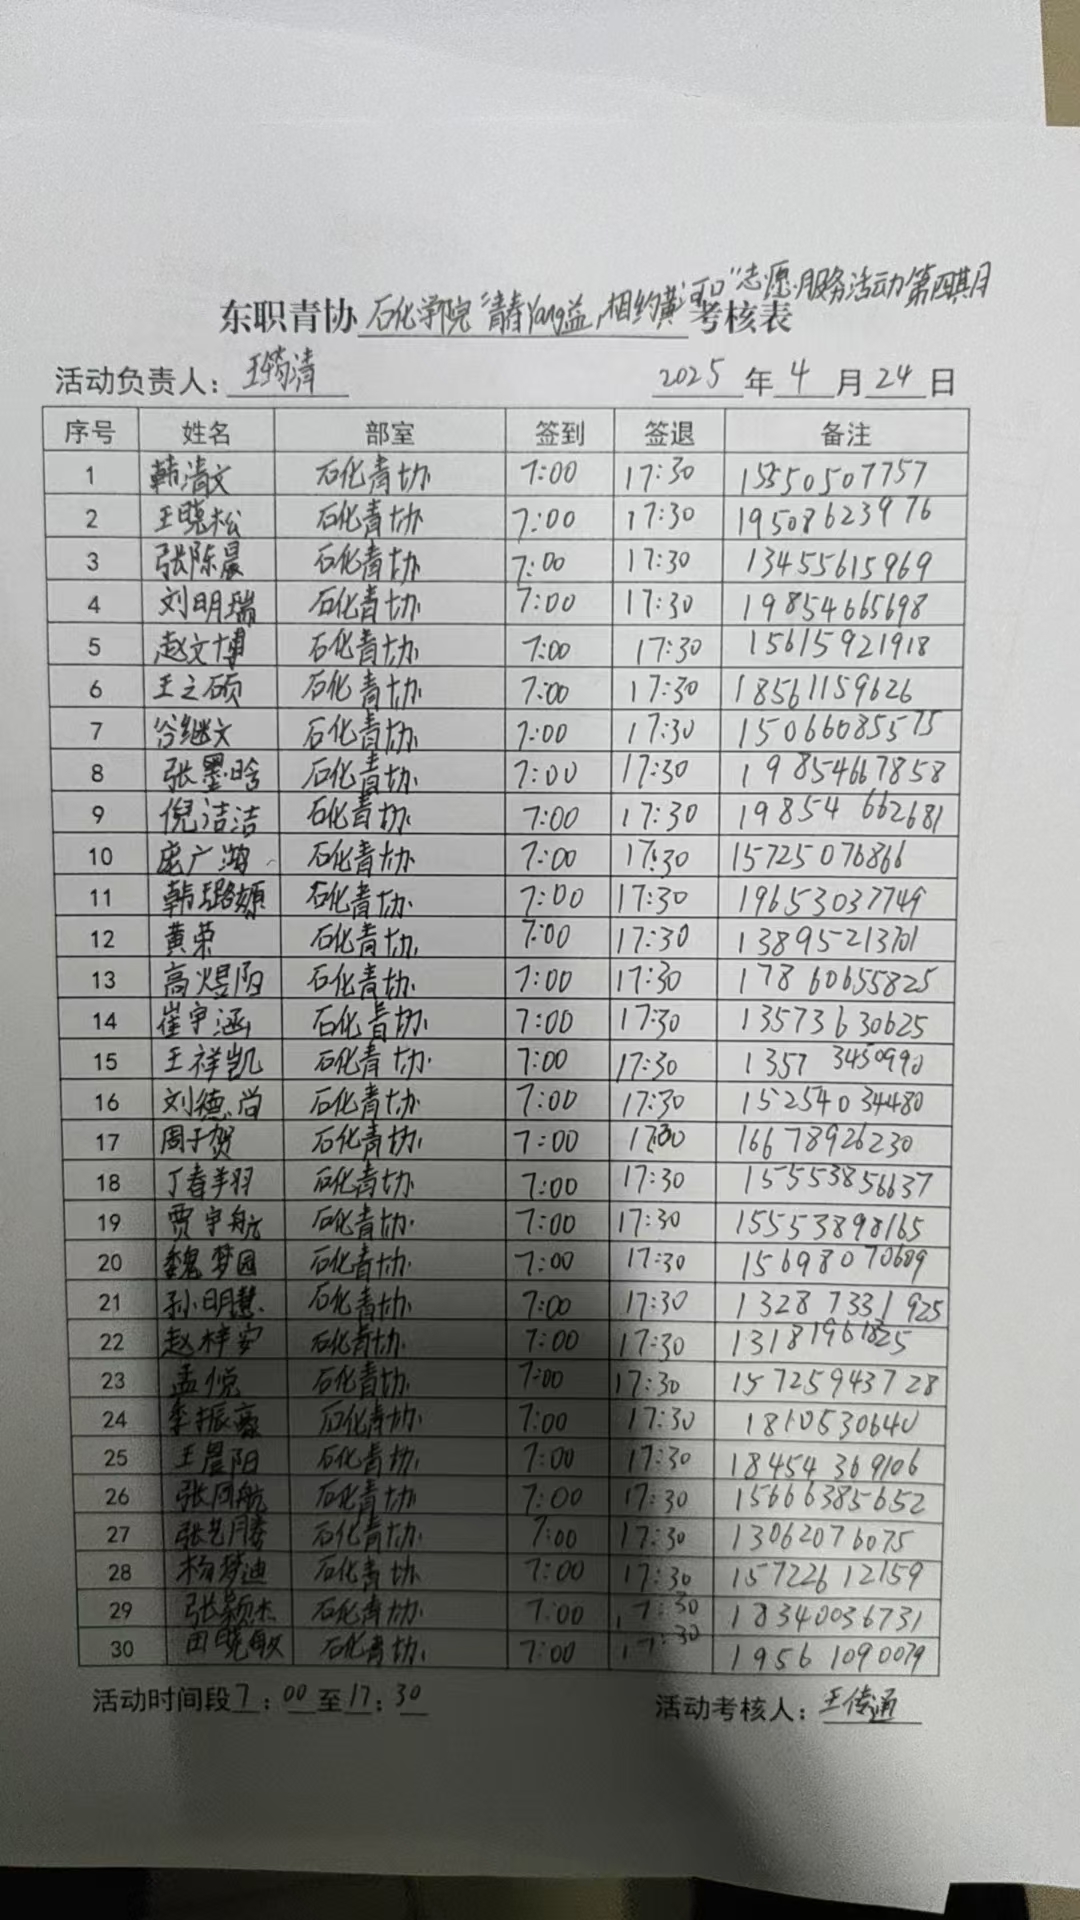 志愿服务活动第四期
东职青协石化学院"青春Yang益,相约黄河口"考核表
活动负责人:王筠清 2025年4月24日
序号 姓名 部室 签到 签退 备注
1 韩清文 石化青协 7:00 17:30 15550507757
2 王晓松 石化青协 7:00 17:30 19508623976
3 张陈晨 石化青协 7:00 17:30 13455615969
4 刘明瑞 石化青协 7:00 17:30 19854665698
5 赵文博 石化青协 7:00 17:30 15615921918
6 王之硕 石化青协 7:00 17:30 18561159626
7 谷继文 石化青协 7:00 17:30 15066085575
8 张墨晗 石化青协 7:00 17:30 19854667858
9 倪洁洁 石化青协 7:00 17:30 19854662681
10 庞广鸿 石化青协 7:00 17:30 15725076866
11 韩璐媛 石化青协 7:00 17:30 19653037749
12 黄荣 石化青协 7:00 17:30 13895213701
13 高煜阳 石化青协 7:00 17:30 17860655825
14 崔宇涵 石化青协 7:00 17:30 13573630625
15 王祥凯 石化青协 7:00 17:30 13573450990
16 刘德尚 石化青协 7:00 17:30 15254034480
17 周子贺 石化青协 7:00 17:30 16678926230
18 丁春羽 石化青协 7:00 17:30 15553856637
19 贾宇航 石化青协 7:00 17:30 15553898165
20 魏梦园 石化青协 7:00 17:30 15698070689
21 孙明慧 石化青协 7:00 17:30 13287331925
22 赵梓安 石化青协 7:00 17:30 13181961825
23 孟悦 石化青协 7:00 17:30 15725943728
24 李振豪 石化青协 7:00 17:30 1810530640
25 王晨阳 石化青协 7:00 17:30 18454369106
26 张同航 石化青协 7:00 17:30 15666385652
27 张艺腾 石化青协 7:00 17:30 13062076075
28 杨梦迪 石化青协 7:00 17:30 15722612159
29 张颖杰 石化青协 7:00 17:30 18340036731
30 田晓敏 石化青协 7:00 17:30 19561090079
活动时间段7:00至17:30 活动考核人:王传通